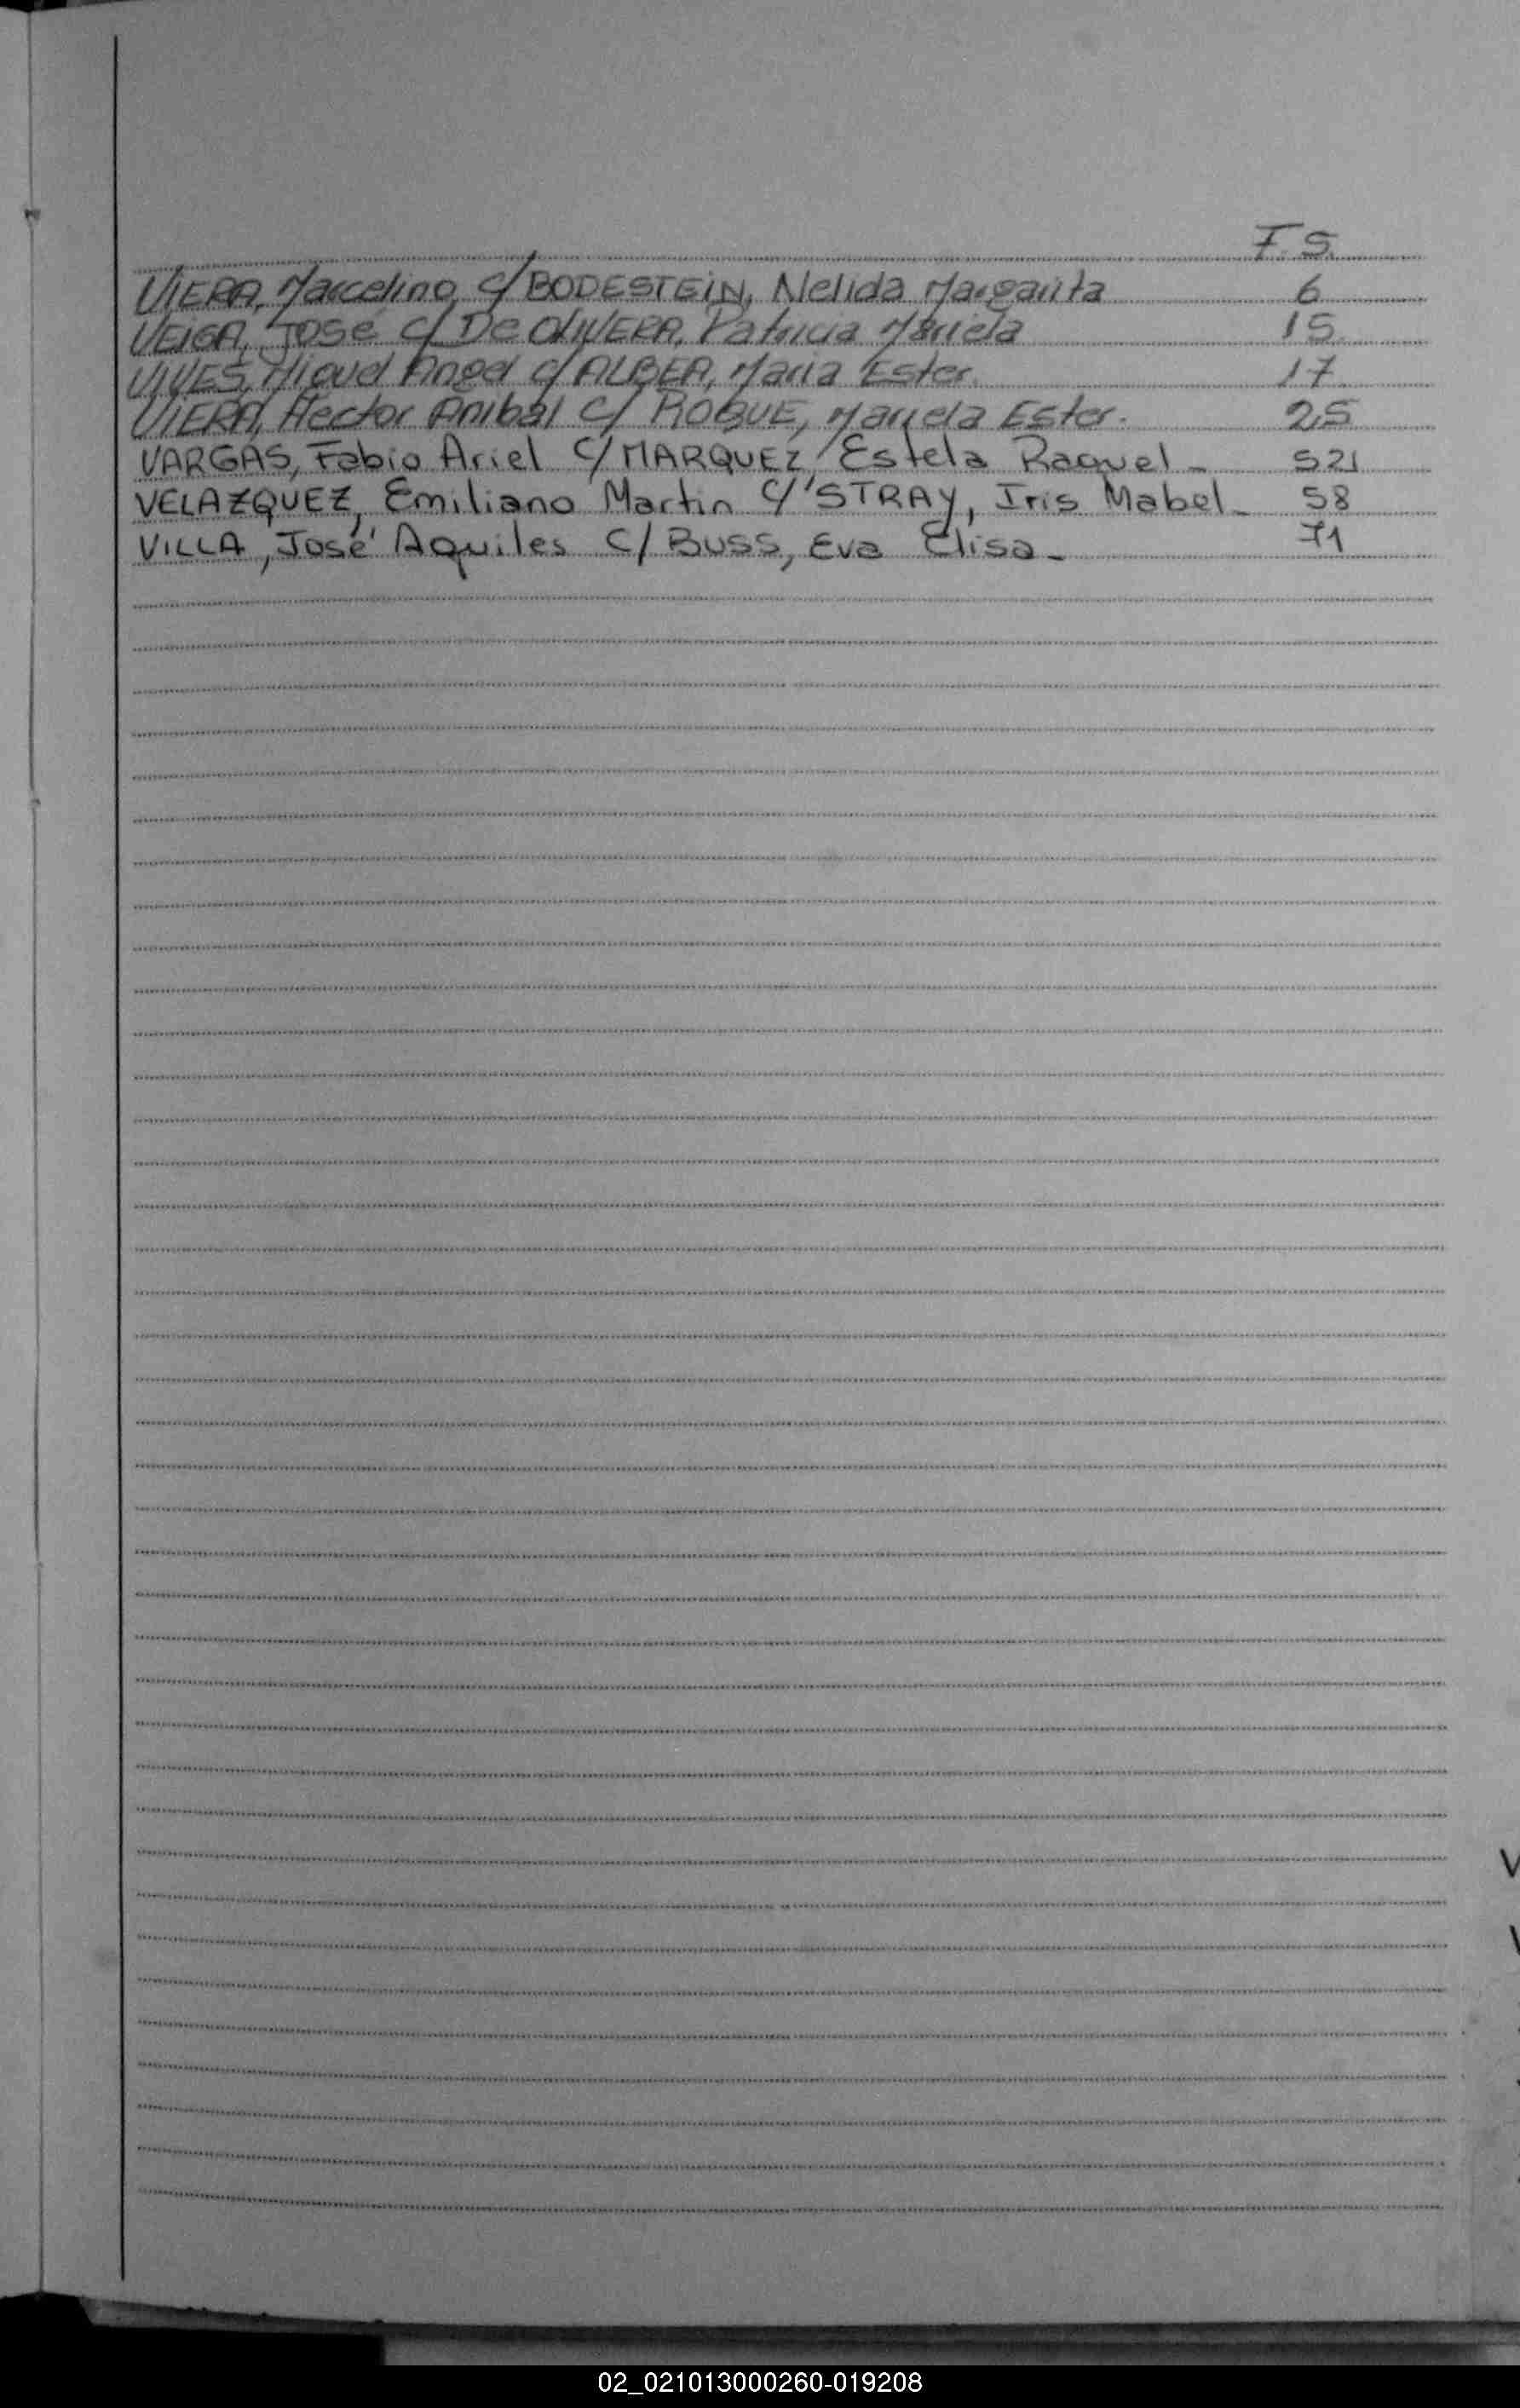 F.S.
VIERA, Marcelino, c/ BODESTEIN, Nelida Margarita 6
VEIGA, JOSE c/ De OLIVERA, Patricia Mariela 15
VIVES, Miguel Angel c/ ALBER, Maria Ester. 17
VIERA, Hector Anibal c/ ROQUE, Mariela Ester. 25
VARGAS, Fabio Ariel C/ MARQUEZ, Estela Raquel - 521
VELAZQUEZ, Emiliano Martin C/ STRAY, Iris Mabel - 58
VILLA, José Aquiles C/ Buss, Eva Elisa - 71
02_021013000260-019208